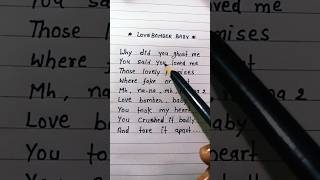 ★ LOVE BOMBER BABY ★
Why did you ghost me
You said you loved me
Those lovely promises
Where fake or
Mh, na-na, mh, na 2
Love bomber, baby
You took my heart
You crushed it badly
And tore it apart
You
You
heart